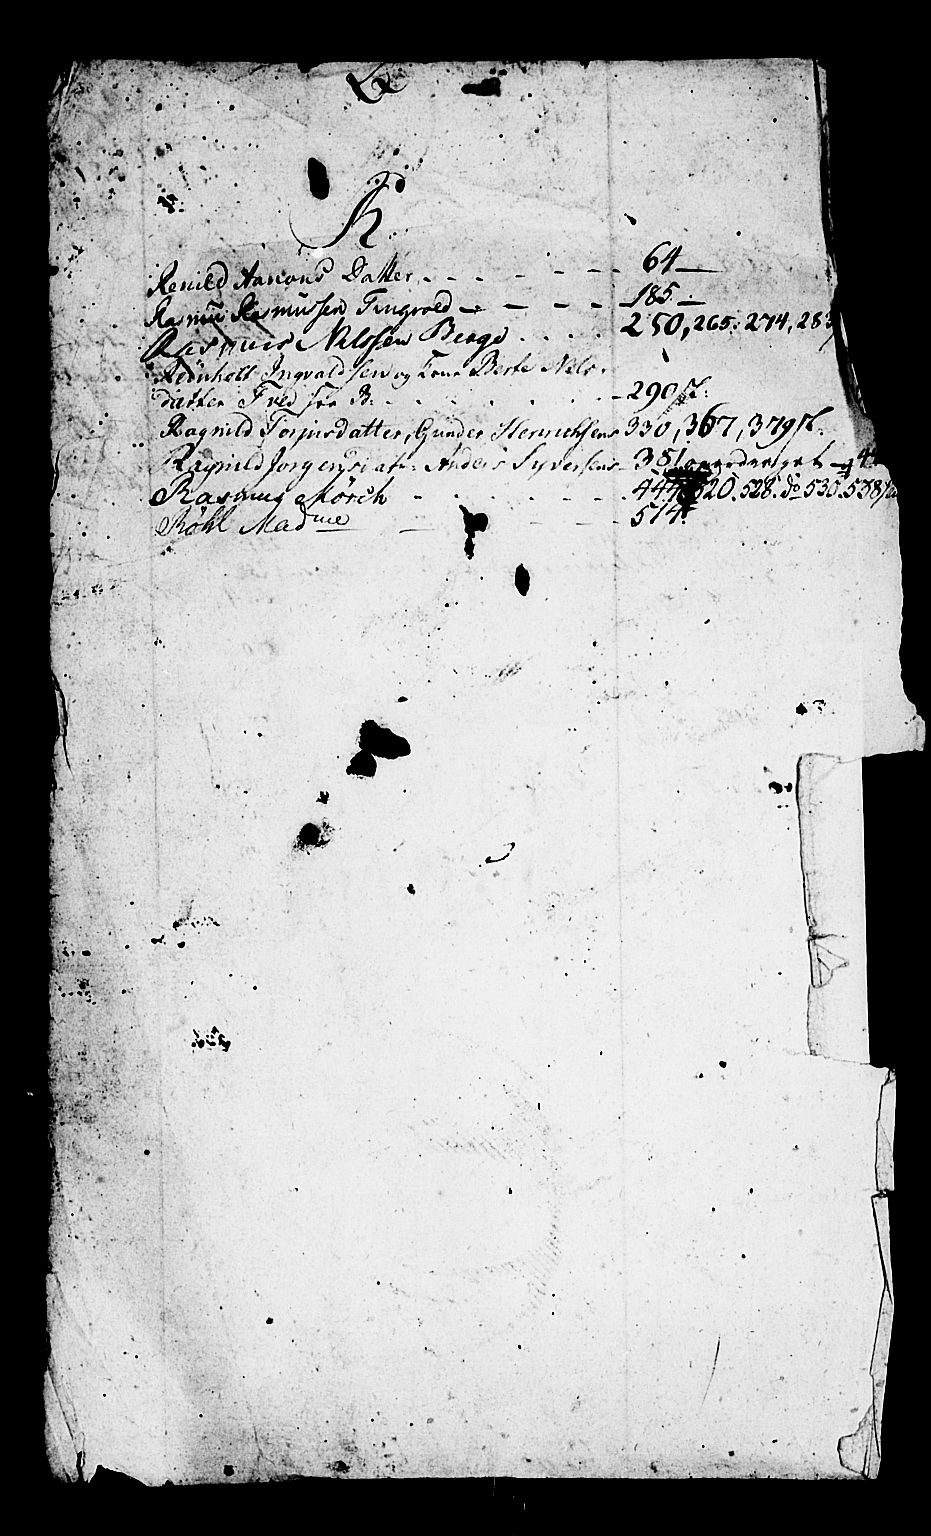 R
Renild Aanons Datter - - - - - - - 64 —
Rasmus Rasmussen Tingvold — - - - - 185 —
Rasmus Nilssen Berge . . . . 250, 265, 274, 283,
Reinholt Ingvaldsen og Kone Berte Nils-
datter Fred for B: . . . . . . - 290
Ragnild Torjusdatter, Gunder Henrichsens 330, 367, 379
Ragnild Jorgensdatr: Anders Syversens - 381
Rasmus Mörch - - - - - - 520. 528. do 530. 538
Röhl Madme — - - - 514.